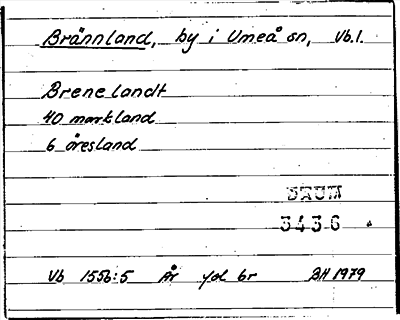 Brännland, by i Umeå sn, Vb.l.
Brenelandt
40 markland
6 öresland
DAUM
3436
Vb 1556:5 År jol br BH 1979